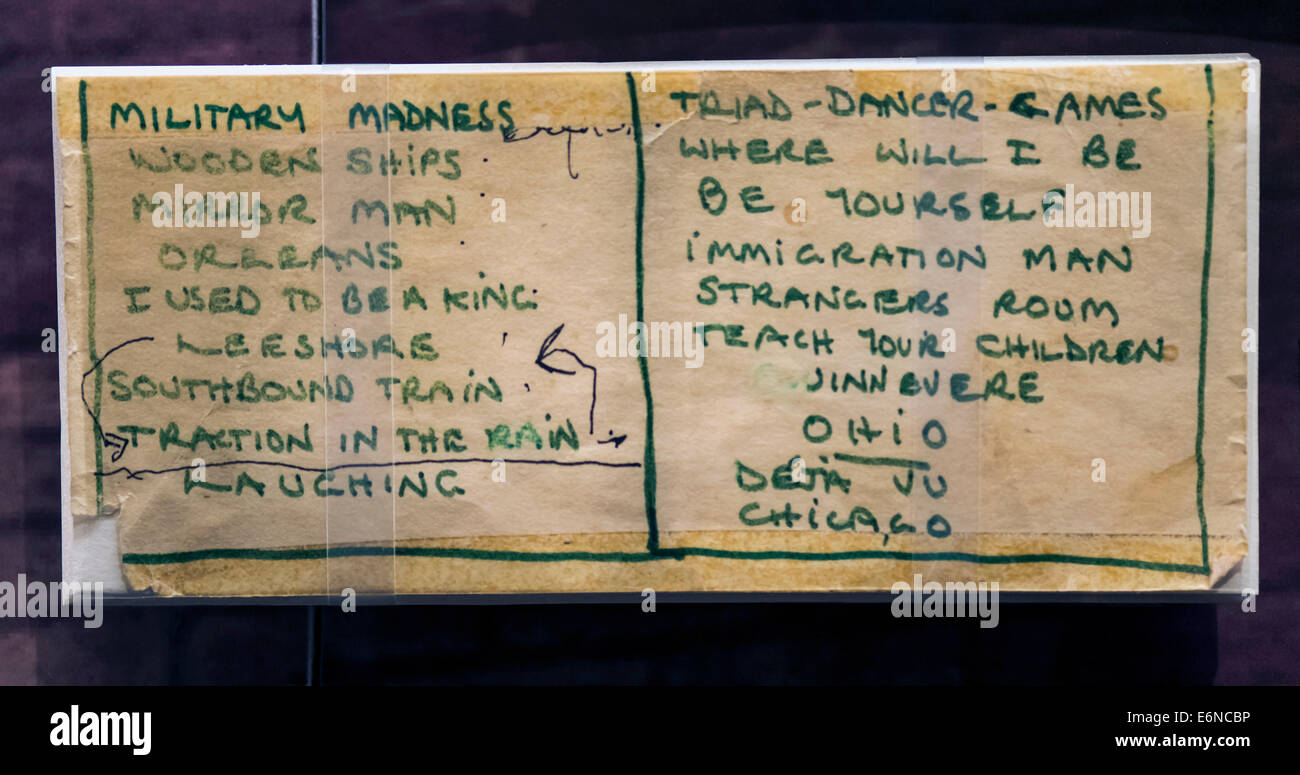 MILITARY MADNESS
WOODEN SHIPS
MIRROR MAN
ORLEANS
I USED TO BE A KING
LEESHORE
SOUTHBOUND TRAIN
TRACTION IN THE RAIN
LAUGHING
TRIAD - DANCER - GAMES
WHERE WILL I BE
BE YOURSELF
IMMIGRATION MAN
STRANGERS ROOM
TEACH YOUR CHILDREN
GUINNEVERE
OHIO
DEJA VU
CHICAGO
a alamy stock photo
E6NCBP
www.alamy.com